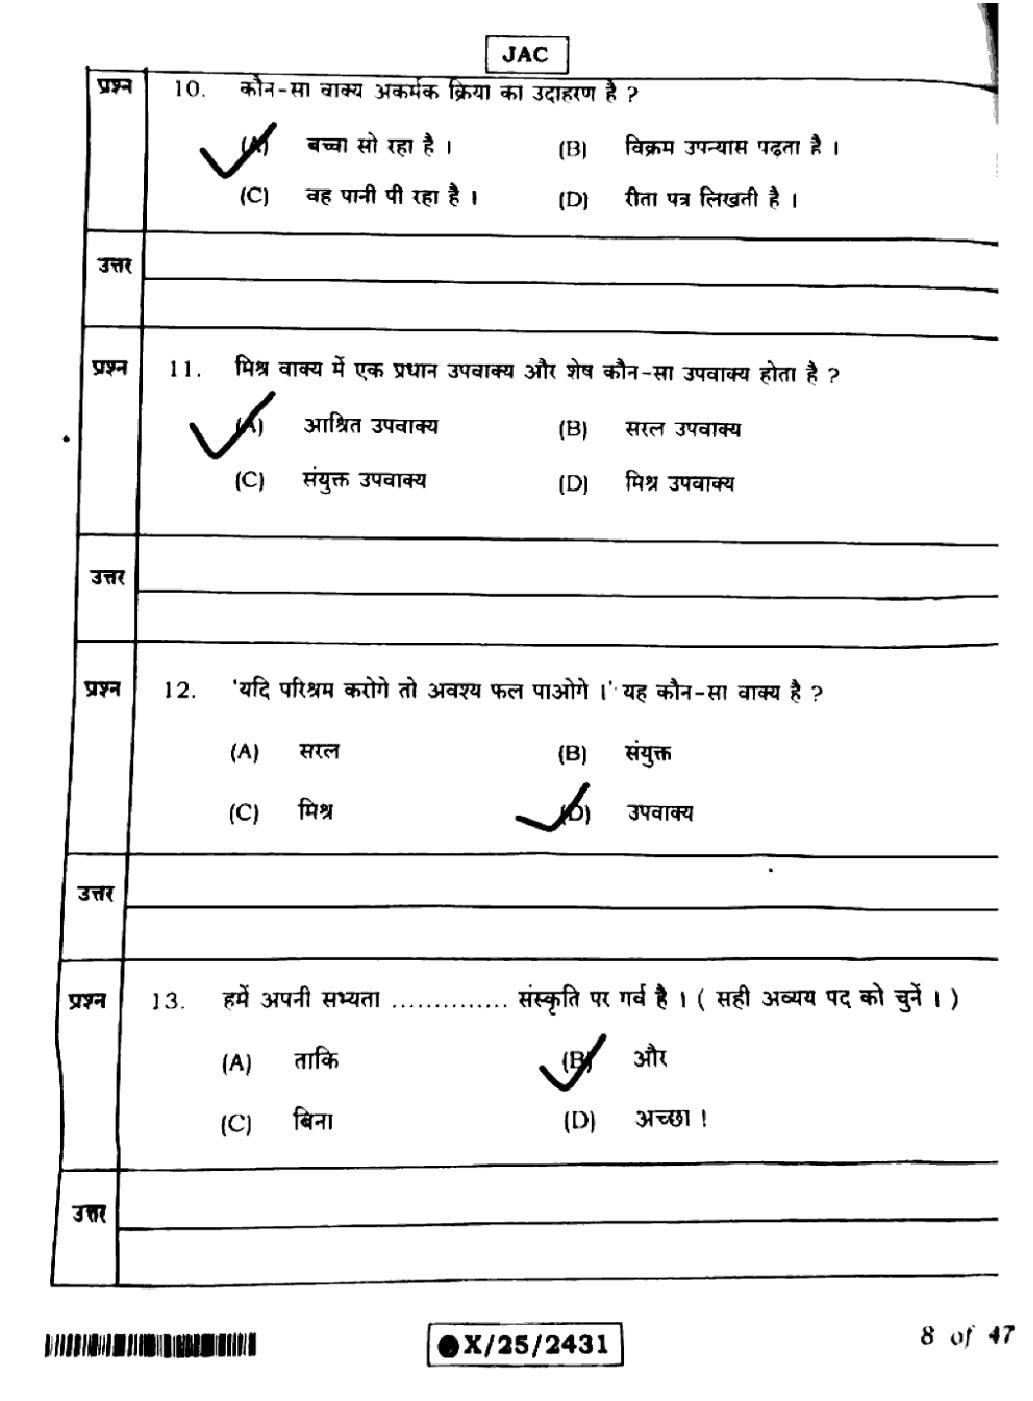 JAC
प्रश्न 10. कौन-सा वाक्य अकर्मक क्रिया का उदाहरण है ?
(A) बच्चा सो रहा है । (B) विक्रम उपन्यास पढ़ता है ।
(C) वह पानी पी रहा है । (D) रीता पत्र लिखती है ।
उत्तर
प्रश्न 11. मिश्र वाक्य में एक प्रधान उपवाक्य और शेष कौन-सा उपवाक्य होता है ?
(A) आश्रित उपवाक्य (B) सरल उपवाक्य
(C) संयुक्त उपवाक्य (D) मिश्र उपवाक्य
उत्तर
प्रश्न 12. 'यदि परिश्रम करोगे तो अवश्य फल पाओगे ।' यह कौन-सा वाक्य है ?
(A) सरल (B) संयुक्त
(C) मिश्र (D) उपवाक्य
उत्तर
प्रश्न 13. हमें अपनी सभ्यता .............. संस्कृति पर गर्व है । ( सही अव्यय पद को चुनें । )
(A) ताकि (B) और
(C) बिना (D) अच्छा !
उत्तर
X/25/2431
8 of 47